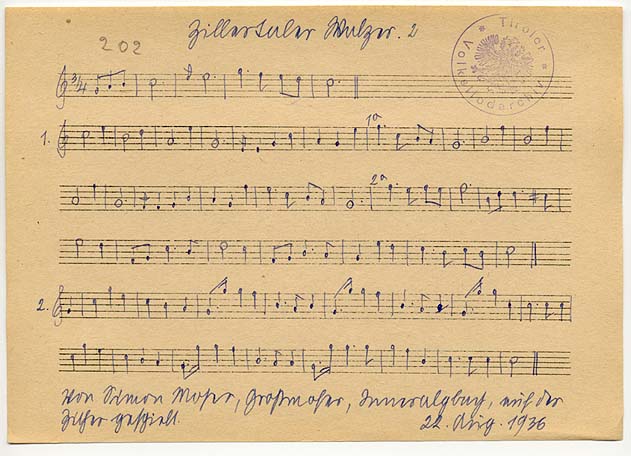 Zillertaler Walzer. 2
202
* Tiroler * Volksliedarchiv
3/4
1.
1a
2a
2.
Von Simon Moser, Großmoser, Inneralpbach, auf der
Zither gespielt. 22. Aug. 1936